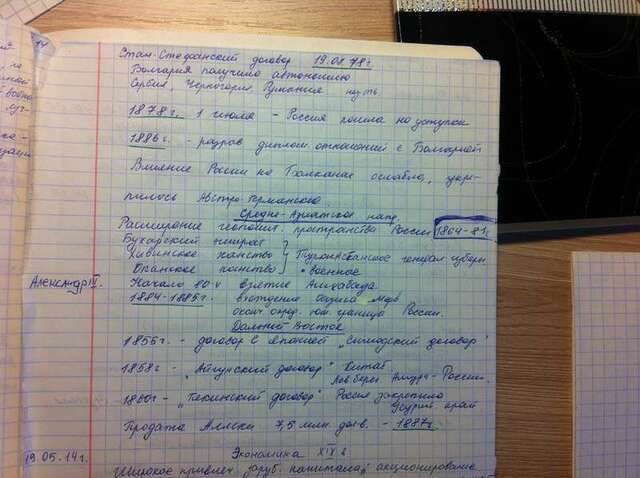 Стам-Стефанский договор 19.08 78г.
Болгария получила автономию
Сербия, Черногория, Румыния
1878г. 1 июля - Россия пошла на уступки
1886г. - разрыв диплом отношений с Болгарией
Влияние России на Балканах ослабло, укре-
пилось Австро-Германского.
Средне-Азиатское напр.
Расширение геополит. пространства России 1864-81г
Бухарский эмират
Хивинское ханство Туркестанское генерал губерн.
ханство военное
Александр III.
Начало 80-х взятие Ашхабада
1884-1885г. вхождение оазиса Мерв
оконч опред. юж. границы России.
Дальний Восток
1856г. - договор с Японией "Симодский договор"
1858г. - "Айгунский договор" Китай
Лев берег Амура - России.
1860г - "Пекинский договор" Россия закрепила
Уссрий. край
Продажа Аляски 7,5 млн. дол. - 1887г
19.05.14г.
Экономика XIX в
Широкое привлеч заруб. капитала, акционирование